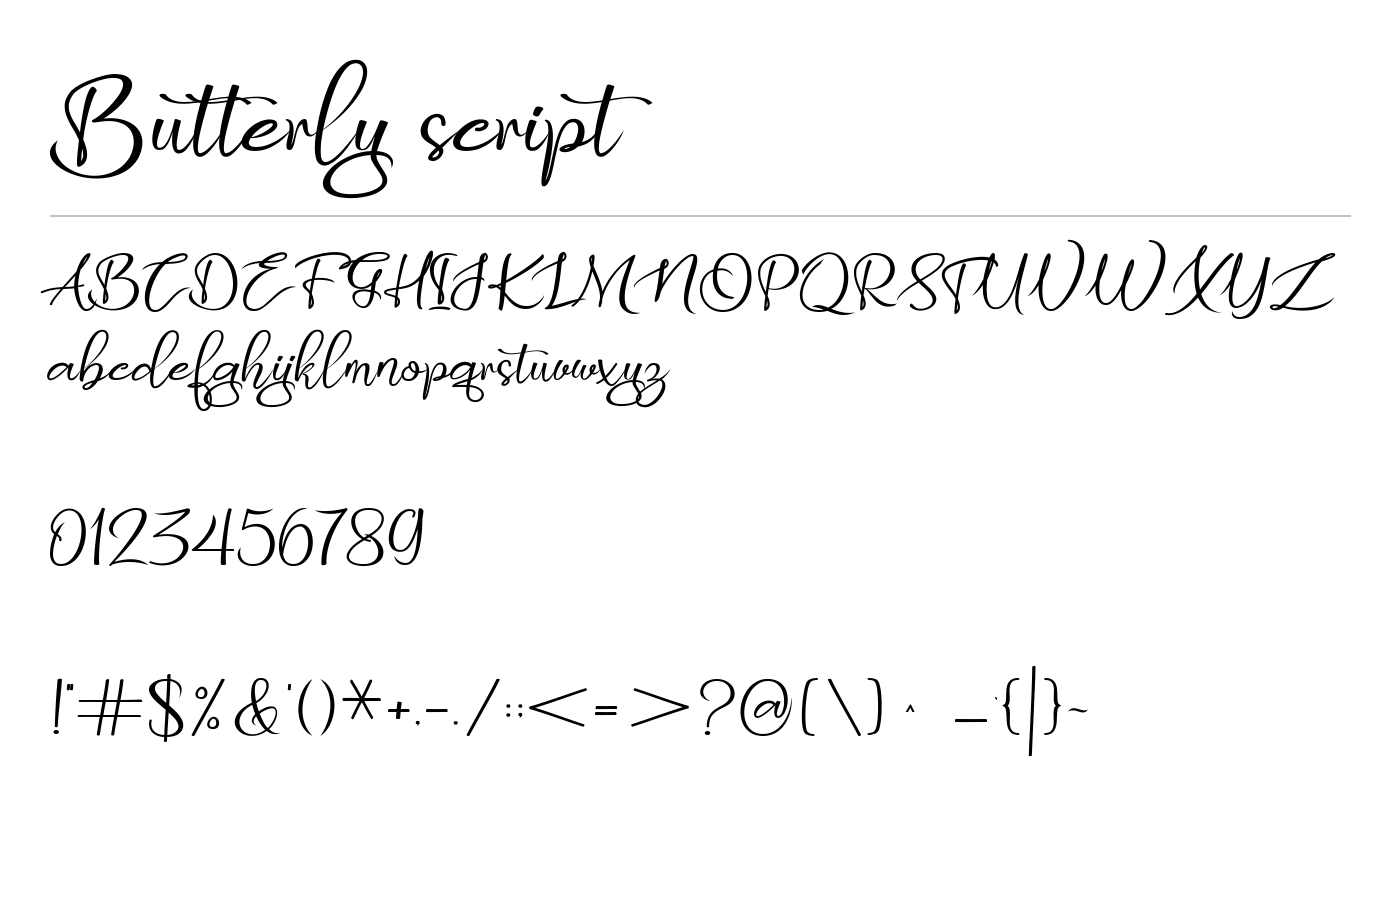 Butterly script
ABCDEFGHIJKLMNOPQRSTUVWXYZ
abcdefghijklmnopqrstuvwxyz
0123456789
!"#$%&'()*+,-./:;<=>?@[\]^_`{|}~